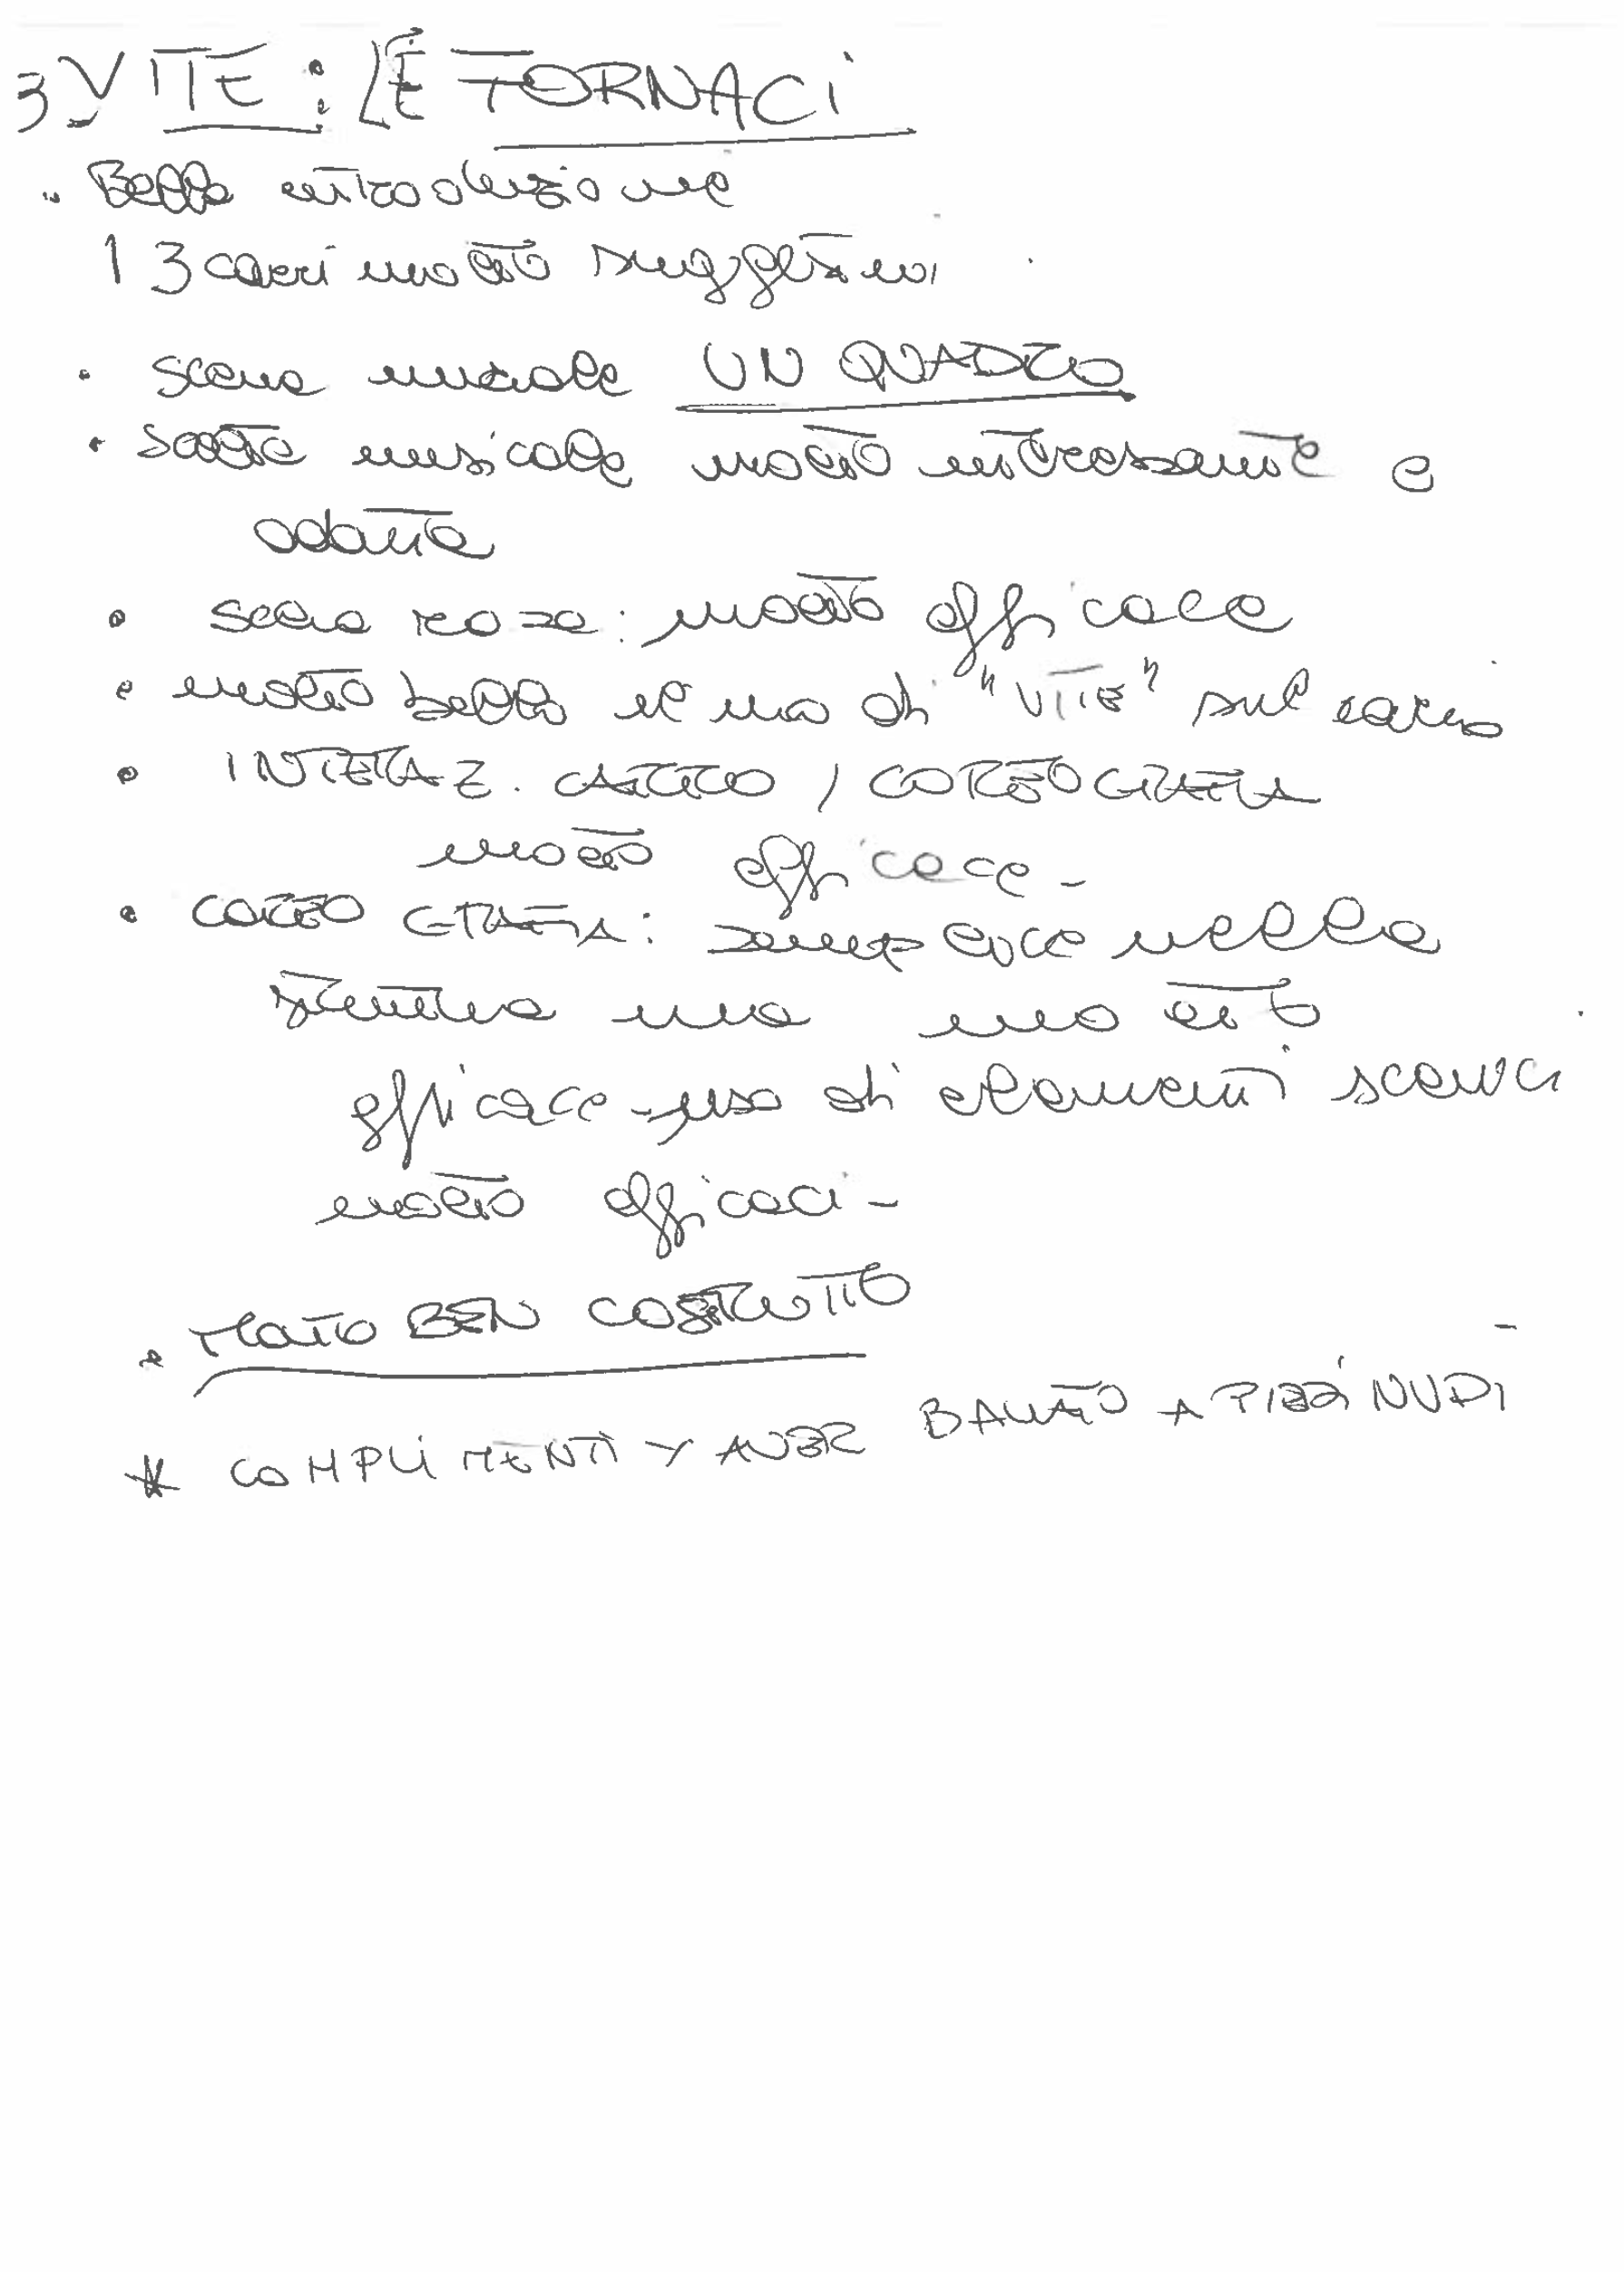 3 VITE : LE FORNACI
Bella introduzione
I 3 carri molto suggestivi
• scena iniziale UN QUADRO
• scelta musicale molto interessante e
adatta
• scena : molto efficace
• molto bello il di "VITE" sul carro
• INTERAZ. CARRO / COREOGRAFIA
molto efficace -
• COREOGRAFIA: semplice nella
struttura ma molto
efficace - uso di elementi scenici
molto efficaci -
• MOLTO BEN COSTRUITO
* COMPLIMENTI X AVER BALLATO A PIEDI NUDI